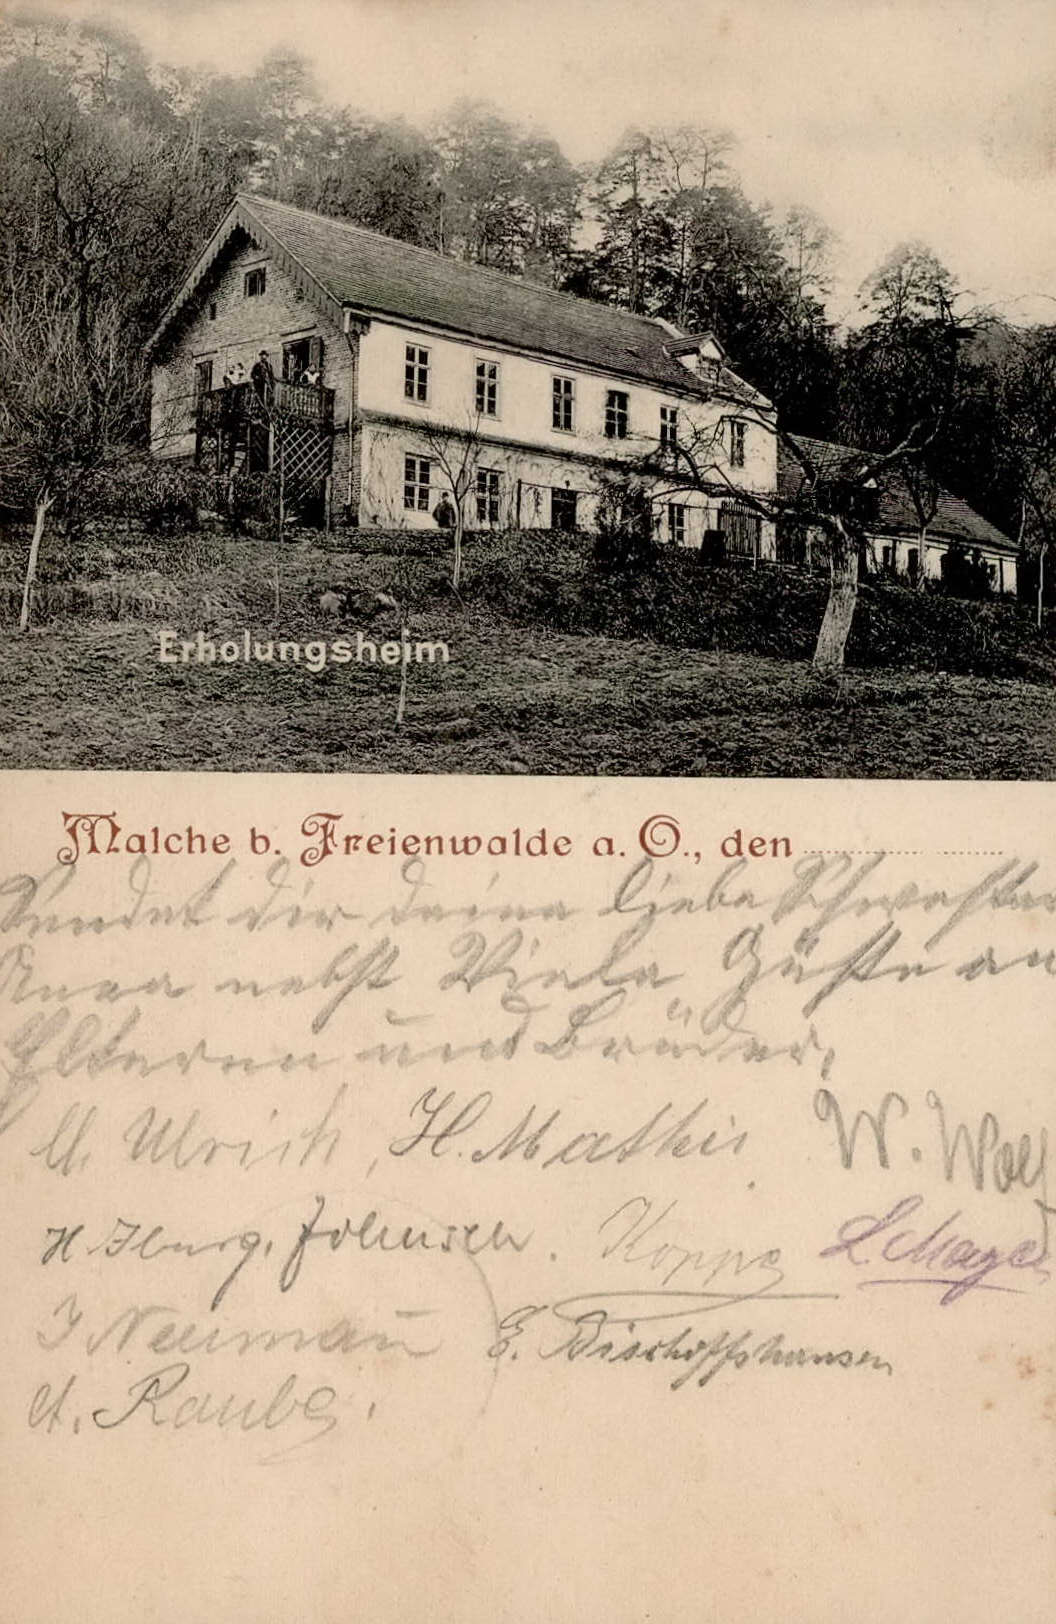 Erholungsheim
Malche b. Freienwalde a. O., den
Sendet dir deine liebe Schwester
Anna nebst Viele Grüße an
Eltern und Brüder.
Ulrich, H. Mathis W. Wolf
H Iburg. Koppe L. Mayer
J Neumann E. Bischoffshausen
A. Raube.